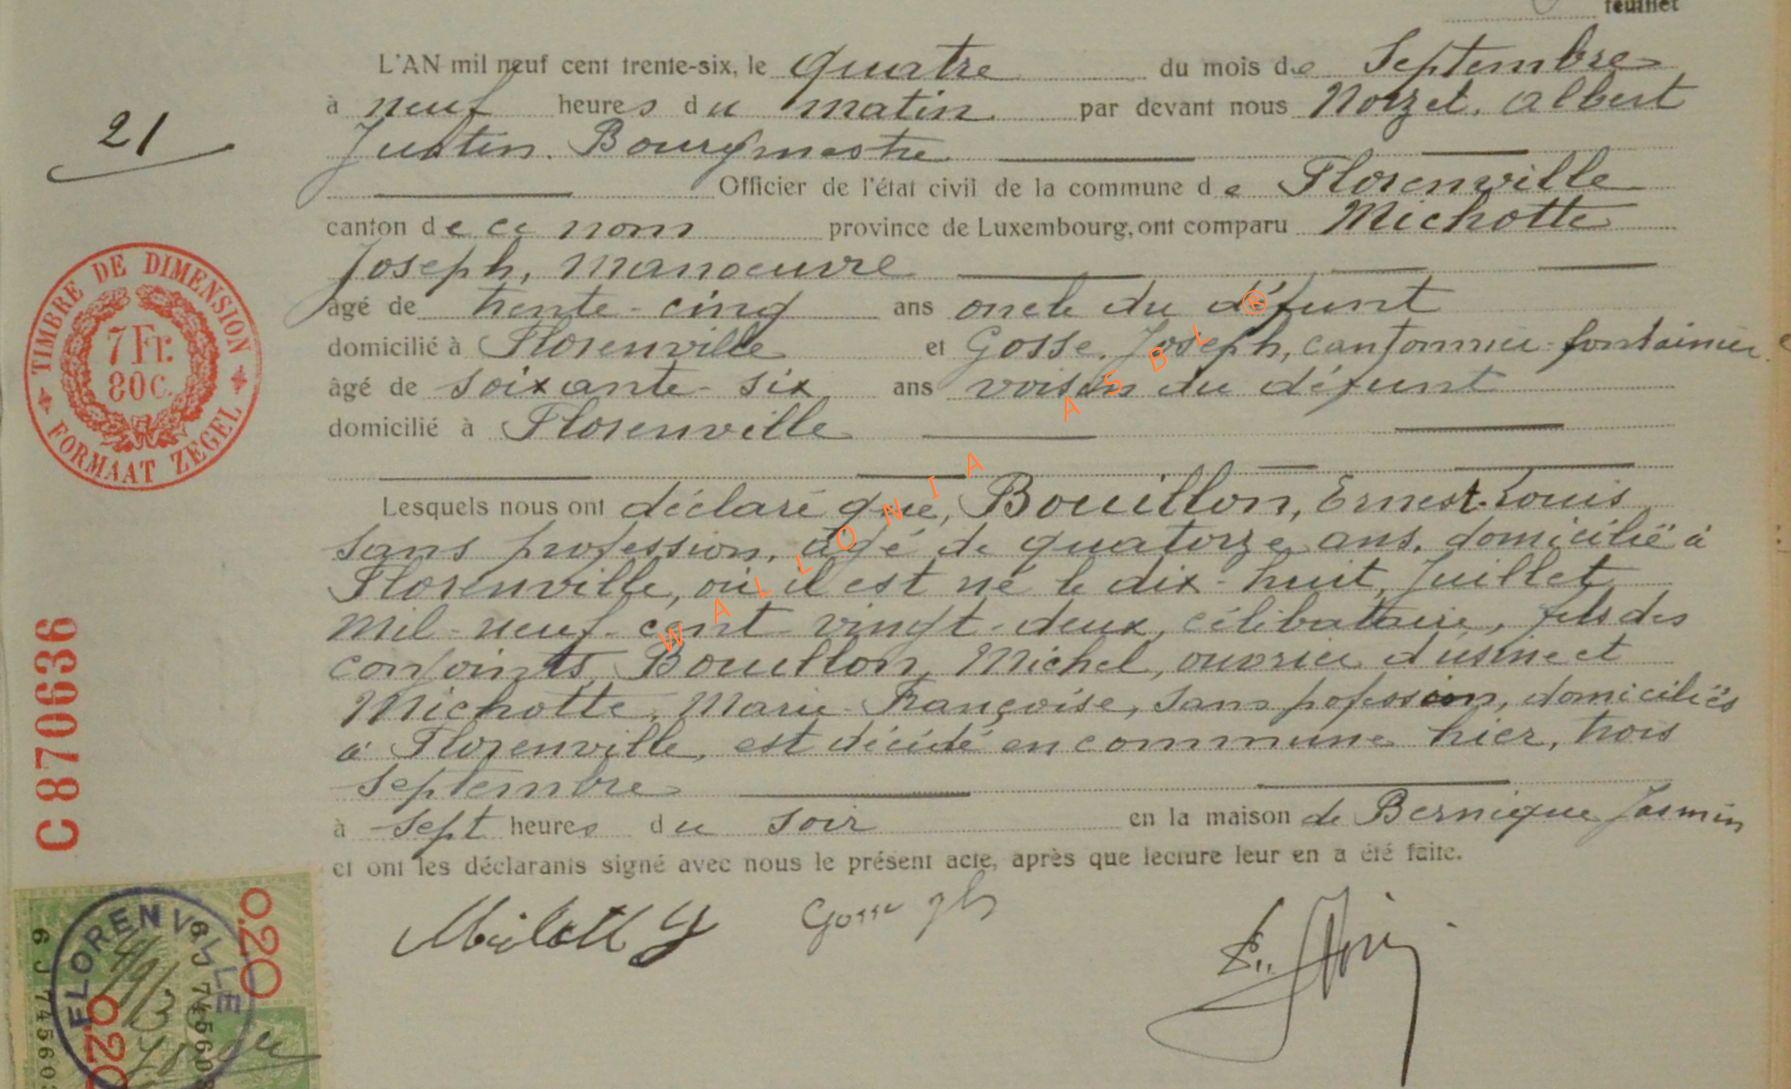 feuillet
L'AN mil neuf cent trente-six, le quatre du mois de Septembre
21
à neuf heures du matin par devant nous Noizet, Albert
Justin. Bourgmestre
Officier de l'état civil de la commune de Florenville
canton de ce nom province de Luxembourg, ont comparu Michotte
Joseph, manoeuvre
âgé de trente-cinq ans oncle du défunt
domicilié à Florenville et Gosse, Joseph, cantonnier-fontainier
âgé de soixante-six ans voisin du défunt
domicilié à Florenville
Lesquels nous ont déclaré que, Bouillon, Ernest-Louis
sans profession, âgé de quatorze ans, domicilié à
Florenville, où il est né le dix-huit, Juillet
mil-neuf-cent-vingt-deux, célibataire, fils des
conjoints, Bouillon, Michel, ouvrier d'usine et
Michotte, Marie-Françoise, sans pofession, domiciliés
à Florenville, est décédé en commune hier, trois
septembre
à sept heures du soir en la maison de Bernique Jasmin
et ont les déclarants signé avec nous le présent acte, après que lecture leur en a été faite.
Gosse Jh
TIMBRE DE DIMENSION
7 Fr.
80 c.
FORMAAT ZEGEL
C 870636
FLORENVILLE
0.20
0.20
4/9/3
6 J 745603
6 J 74560
WALLONIA ASBL ®